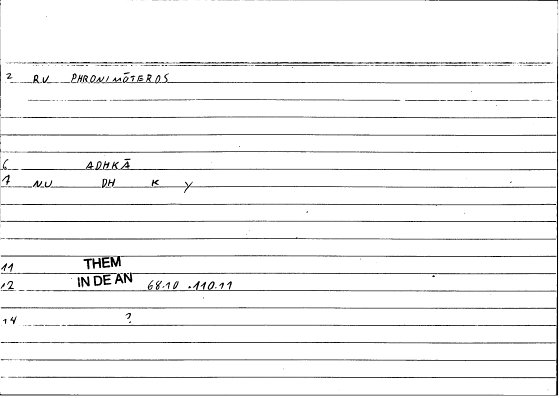 2 RV PHRONIMŌTEROS
6 ADHKĀ
7 NV DH K Y
11 THEM
12 IN DE AN 68.10 .110.11
14 ?